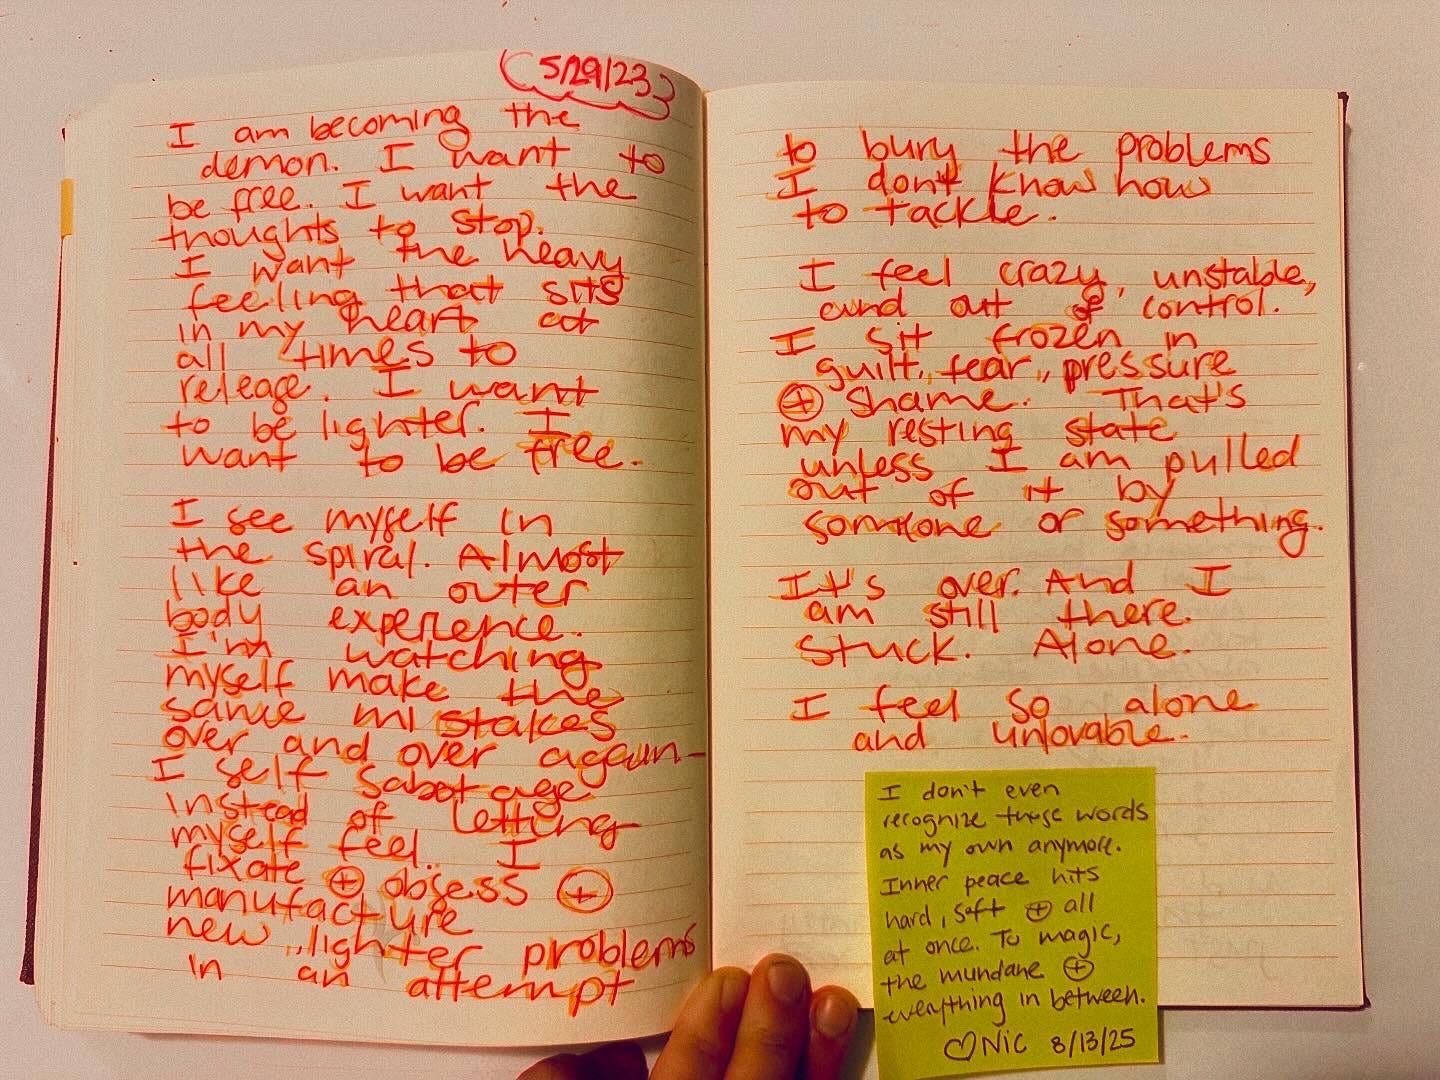 5/29/23
I am becoming the
demon. I want to
be free. I want the
thoughts to stop.
I want the heavy
feeling that sits
in my heart at
all times to
release. I want
to be lighter. I
want to be free.
I see myself in
the spiral. Almost
like an outer
body experience.
I'm watching
myself make the
same mistakes
over and over again-
I self sabotage
instead of letting
myself feel. I
fixate ⊕ obsess ⊕
manufacture
new, lighter problems
in an attempt
to bury the problems
I don't know how
to tackle.
I feel crazy, unstable,
and out of control.
I sit frozen in
guilt, fear, pressure
⊕ shame. That's
my resting state
unless I am pulled
out of it by
someone or something.
It's over. And I
am still there.
Stuck. Alone.
I feel so alone
and unlovable.
I don't even
recognize these words
as my own anymore.
Inner peace hits
hard, soft ⊕ all
at once. To magic,
the mundane ⊕
everything in between.
♡ Nic 8/13/25